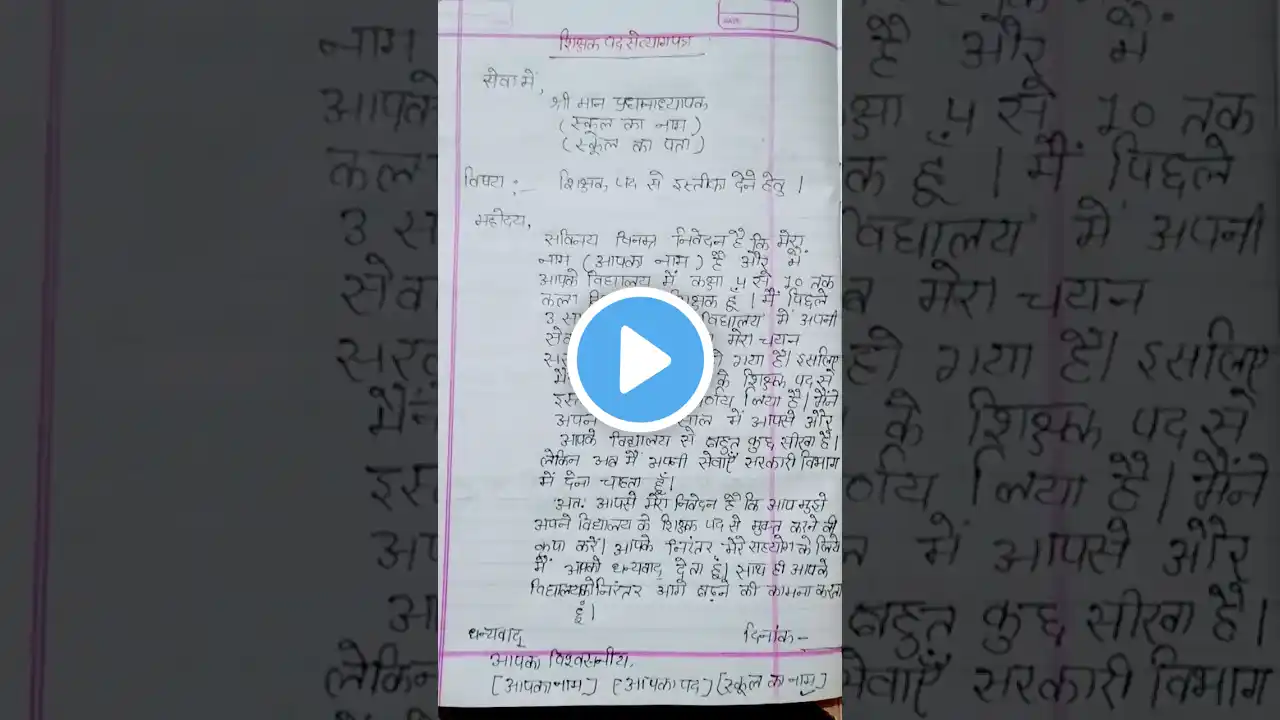 शिक्षक पद से त्यागपत्र
सेवा में,
श्री मान प्रधानाध्यापक
(स्कूल का नाम)
(स्कूल का पता)
विषय :- शिक्षक पद से इस्तीफा देने हेतु।
महोदय,
सविनय विनम्र निवेदन है कि मेरा
नाम (आपका नाम) है और मैं
आपके विद्यालय में कक्षा 4 से 10 तक
कला शिक्षक हूँ। मैं पिछले
3 विद्यालय में अपनी
मेरा चयन
गया है। इसलिए
के शिक्षक पद से
लिया है। मैंने
अपन में आपसे और
आपके विद्यालय से बहुत कुछ सीखा है।
लेकिन अब मैं अपनी सेवाएँ सरकारी विभाग
में देना चाहता हूँ।
अतः आपसे मेरा निवेदन है कि आप मुझे
अपने विद्यालय के शिक्षक पद से मुक्त करने की
कृपा करें। आपके निरंतर मेरे सहयोग के लिये
मैं आपको धन्यवाद देता हूँ। साथ ही आपके
विद्यालय को निरंतर आगे बढ़ने की कामना करता
हूँ।
धन्यवाद् दिनांक-
आपका विश्वसनीय,
[आपका नाम] [आपका पद] [स्कूल का नाम]